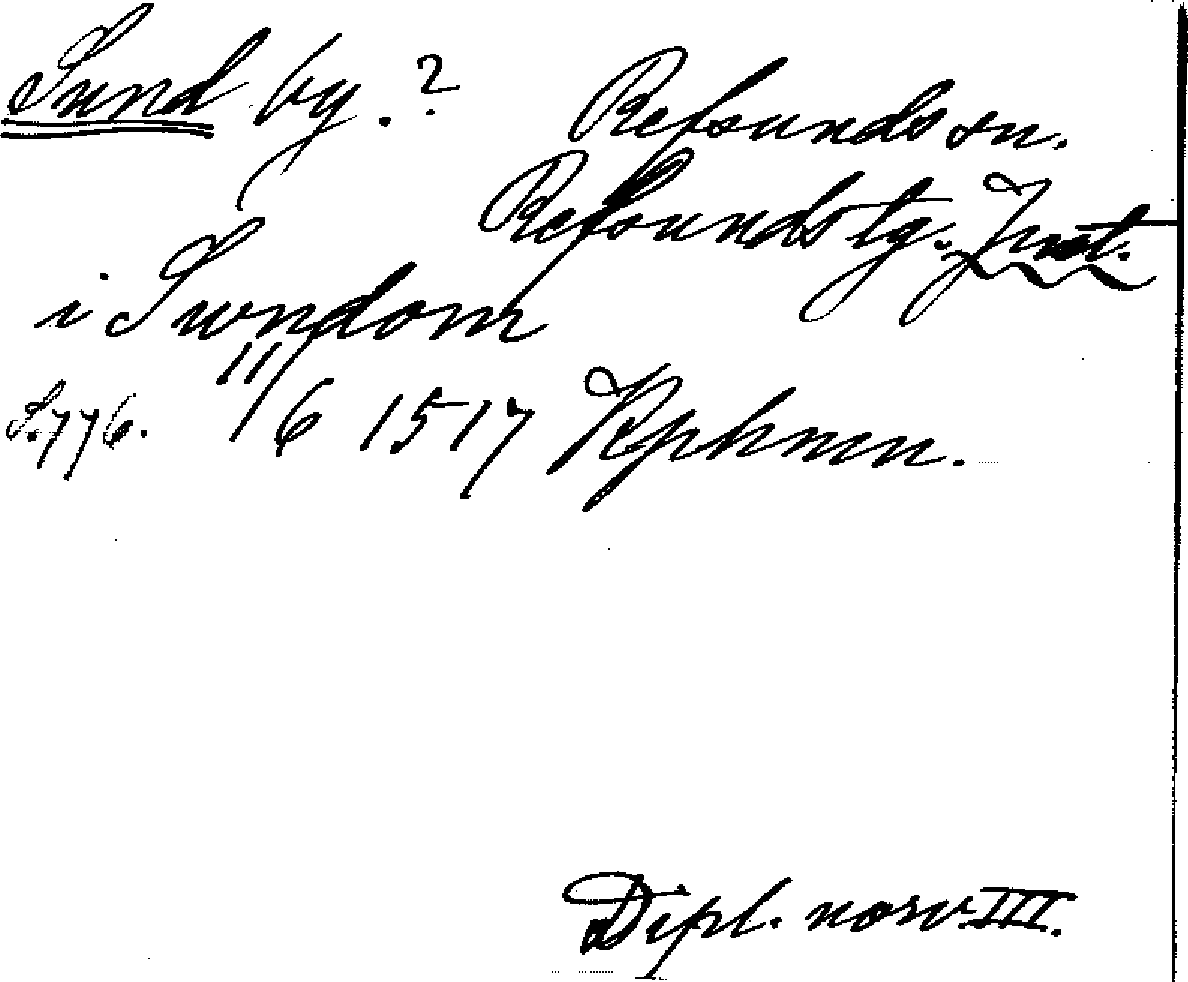 Sund by. ? Refsunds sn.
Refsunds tg. Jmt.
i Swndom
S. 776. 11/6 1517 Kphmn.
Dipl. norv. III.